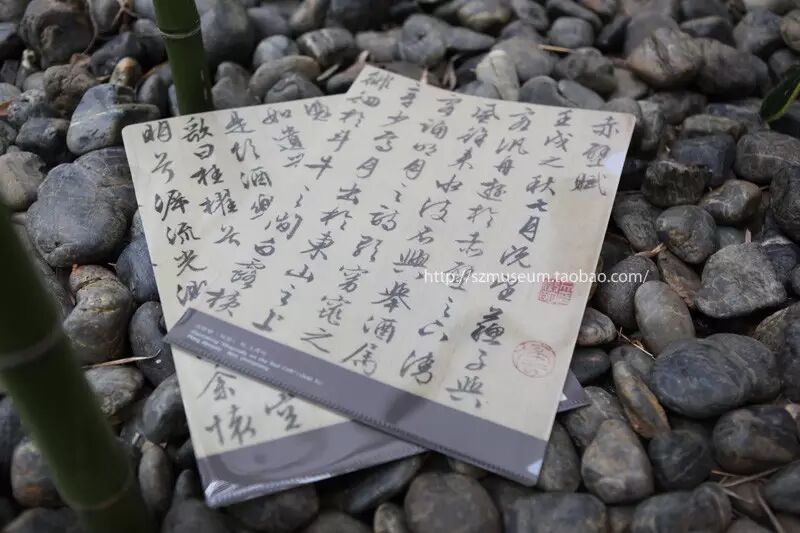 赤壁賦
壬戌之秋七月既望蘇子與
客汎舟遊於赤壁之下清
風徐來水波不興舉酒屬
客誦明月之詩歌窈窕之
章少焉月出於東山之上
徘徊於斗牛之間白露橫
如遺世
是飲酒樂
歌曰桂櫂兮
空
明兮泝流光渺
余懷
http://szmuseum.taobao.com/